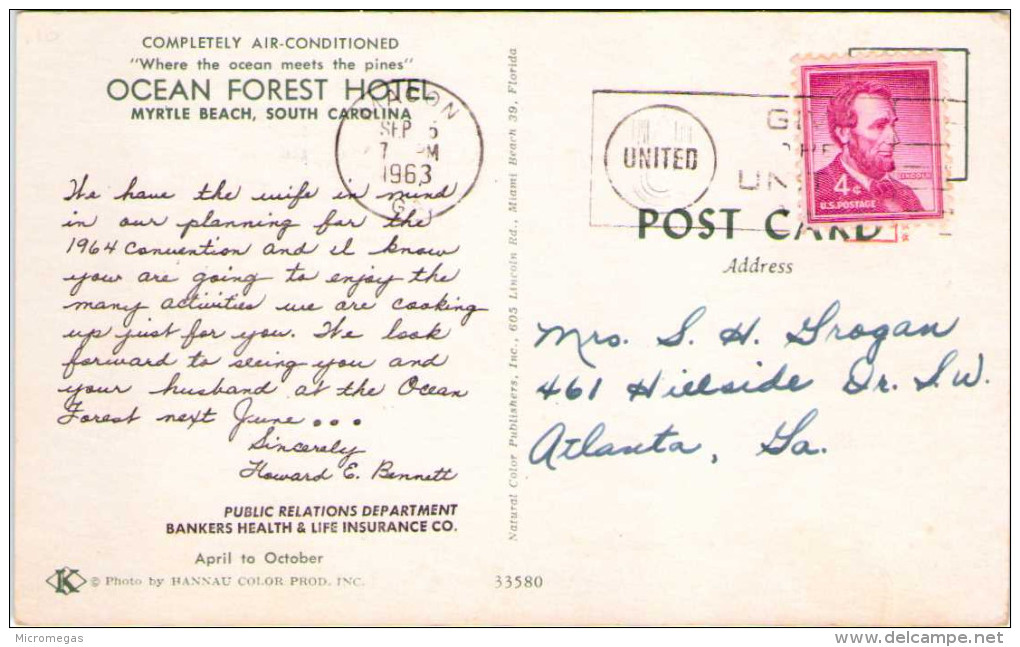 COMPLETELY AIR-CONDITIONED
"Where the ocean meets the pines"
OCEAN FOREST HOTEL
MYRTLE BEACH, SOUTH CAROLINA
MACON
SEP 5
7 PM
1963
GA
We have the wife in mind
in our planning for the
1964 convention and I know
you are going to enjoy the
many activities we are cooking
up just for you. We look
forward to seeing you and
your husband at the Ocean
Forest next June...
Sincerely
Howard E. Bennett
PUBLIC RELATIONS DEPARTMENT
BANKERS HEALTH & LIFE INSURANCE CO.
April to October
K © Photo by HANNAU COLOR PROD. INC.
33580
Natural Color Publishers, Inc., 605 Lincoln Rd., Miami Beach 39, Florida
UNITED
4¢
LINCOLN
U.S. POSTAGE
POST CARD
Address
Mrs. S. H. Grogan
461 Hillside Dr. S.W.
Atlanta, Ga.
Micromegas
delcampe.net